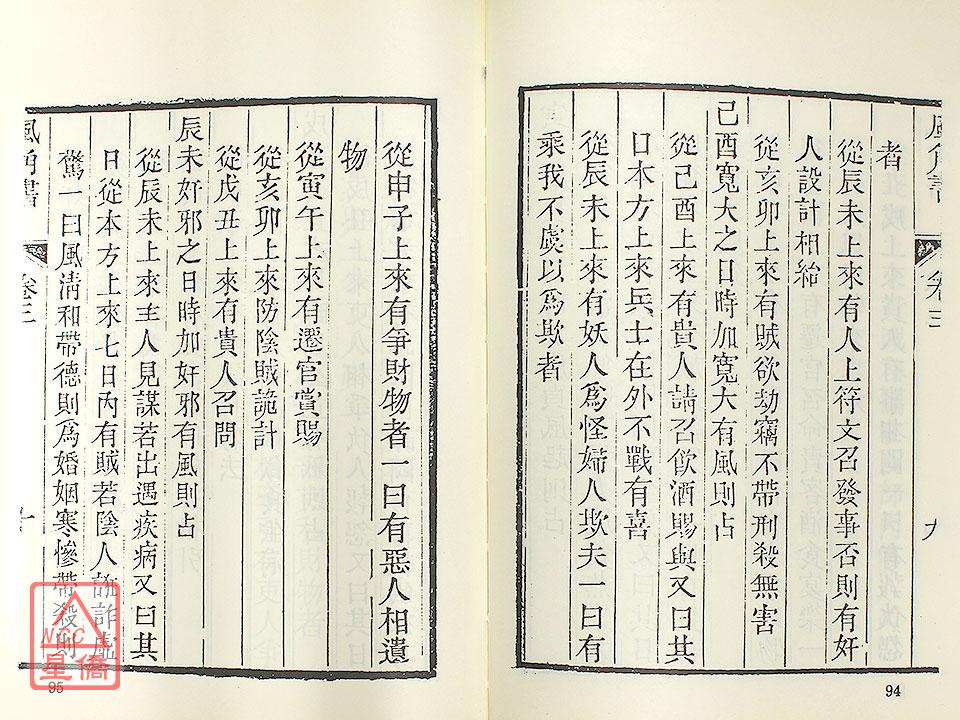 風角書
卷三
九
者
從辰未上來有人上符文召發事否則有奸
人設計相紿
從亥卯上來有賊欲劫竊不帶刑殺無害
己酉寬大之日時加寬大有風則占
從己酉上來有貴人請召飮酒賜與又曰其
日本方上來兵士在外不戰有喜
從辰未上來有妖人爲怪婦人欺夫一曰有
乘我不虞以爲欺者
94
從申子上來有爭財物者一曰有惡人相遺
物
從寅午上來有遷官賞賜
從亥卯上來防陰賊詭計
從戊丑上來有貴人召問
辰未奸邪之日時加奸邪有風則占
從辰未上來主人見謀若出遇疾病又曰其
日從本方上來七日內有賊若陰人詭詐虛
驚一曰風淸和帶德則爲婚姻寒慘帶殺則
風角書
卷三
十
95
NCC
星僑